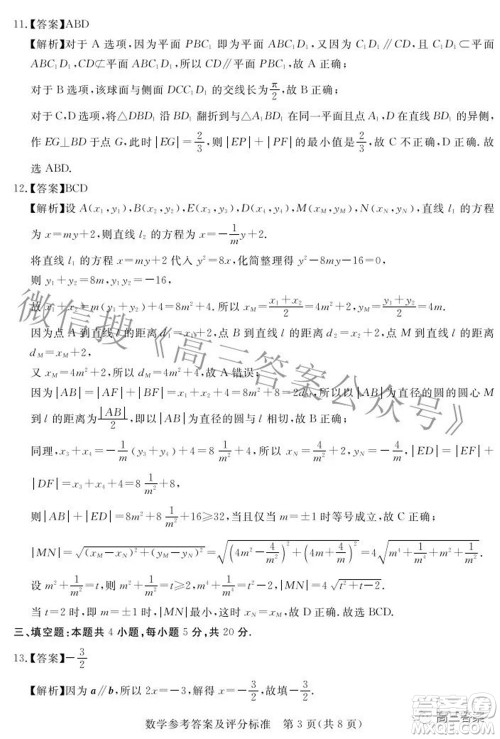 11.【答案】ABD
【解析】对于 A 选项,因为平面 PBC₁ 即为平面 ABC₁D₁,又因为 C₁D₁∥CD,且 C₁D₁⊂平面 ABC₁D₁,CD⊄平面 ABC₁D₁,所以 CD∥平面 PBC₁,故 A 正确;
对于 B 选项,该球面与侧面 DCC₁D₁ 的交线长为 π/2,故 B 正确;
对于 C,D 选项,将△DBD₁ 沿 BD₁ 翻折到与△A₁BD₁ 在同一平面且点 D,A₁ 在直线 BD₁ 的异侧,作 EG⊥BD 于点 G,此时|EG|=2/3,则|EP|+|PF|的最小值是 2/3,故 C 不正确,D 正确.故选 ABD.
12.【答案】BCD
【解析】设 A(x₁,y₁),B(x₂,y₂),D(x₃,y₃),E(x₄,y₄),M(x_M,y_M),N(x_N,y_N),直线 l₁ 的方程为 x=my+2,则直线 l₂ 的方程为 x=-1/m y+2.
将直线 l₁ 的方程 x=my+2 代入 y²=8x,化简整理得 y²-8my-16=0,
则 y₁+y₂=8m,y₁y₂=-16,
故 x₁+x₂=m(y₁+y₂)+4=8m²+4.所以 x_M=(x₁+x₂)/2=4m²+2,y_M=(y₁+y₂)/2=4m.
因为点 A 到直线 l 的距离 d₁=x₁+2,点 B 到直线 l 的距离 d₂=x₂+2,点 M 到直线 l 的距离 d_M=x_M+2,
又 x_M=4m²+2,所以 d_M=4m²+4.故 A 错误;
因为|AB|=|AF|+|BF|=x₁+x₂+4=8m²+8,所以以|AB|为直径的圆的圆心 M 到 l 的距离 d_M=|AB|/2,即以|AB|为直径的圆与 l 相切,故 B 正确;
同理,x₃+x₄=-1/m(y₃+y₄)+4=8·1/m²+4,所以 x_N=4/m²+2,y_N=-4/m,|ED|=|EF|+|DF|=x₃+x₄+4=8·1/m²+8,
则|AB|+|ED|=8m²+8/m²+16≥32,当且仅当 m=±1 时等号成立,故 C 正确;
|MN|=√((x_M-x_N)²+(y_M-y_N)²)=√((4m²-4/m²)²+(4m+4/m)²)=4√(m⁴+1/m⁴+m²+1/m²).
设 m²+1/m²=t,则 m⁴+1/m⁴=t²-2,|MN|=4√(t²+t-2).
当 t=2 时,即 m=±1,|MN|最小,故 D 正确.故选 BCD.
三、填空题:本题共 4 小题,每小题 5 分,共 20 分.
13.【答案】-3/2
【解析】因为 a∥b,所以 2x=-3,解得 x=-3/2.
数学参考答案及评分标准 第 3 页(共 8 页)
微信搜《高三答案公众号》
高三答案